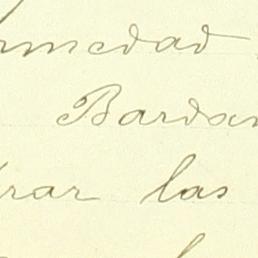 rmedad
Bardan
rar las